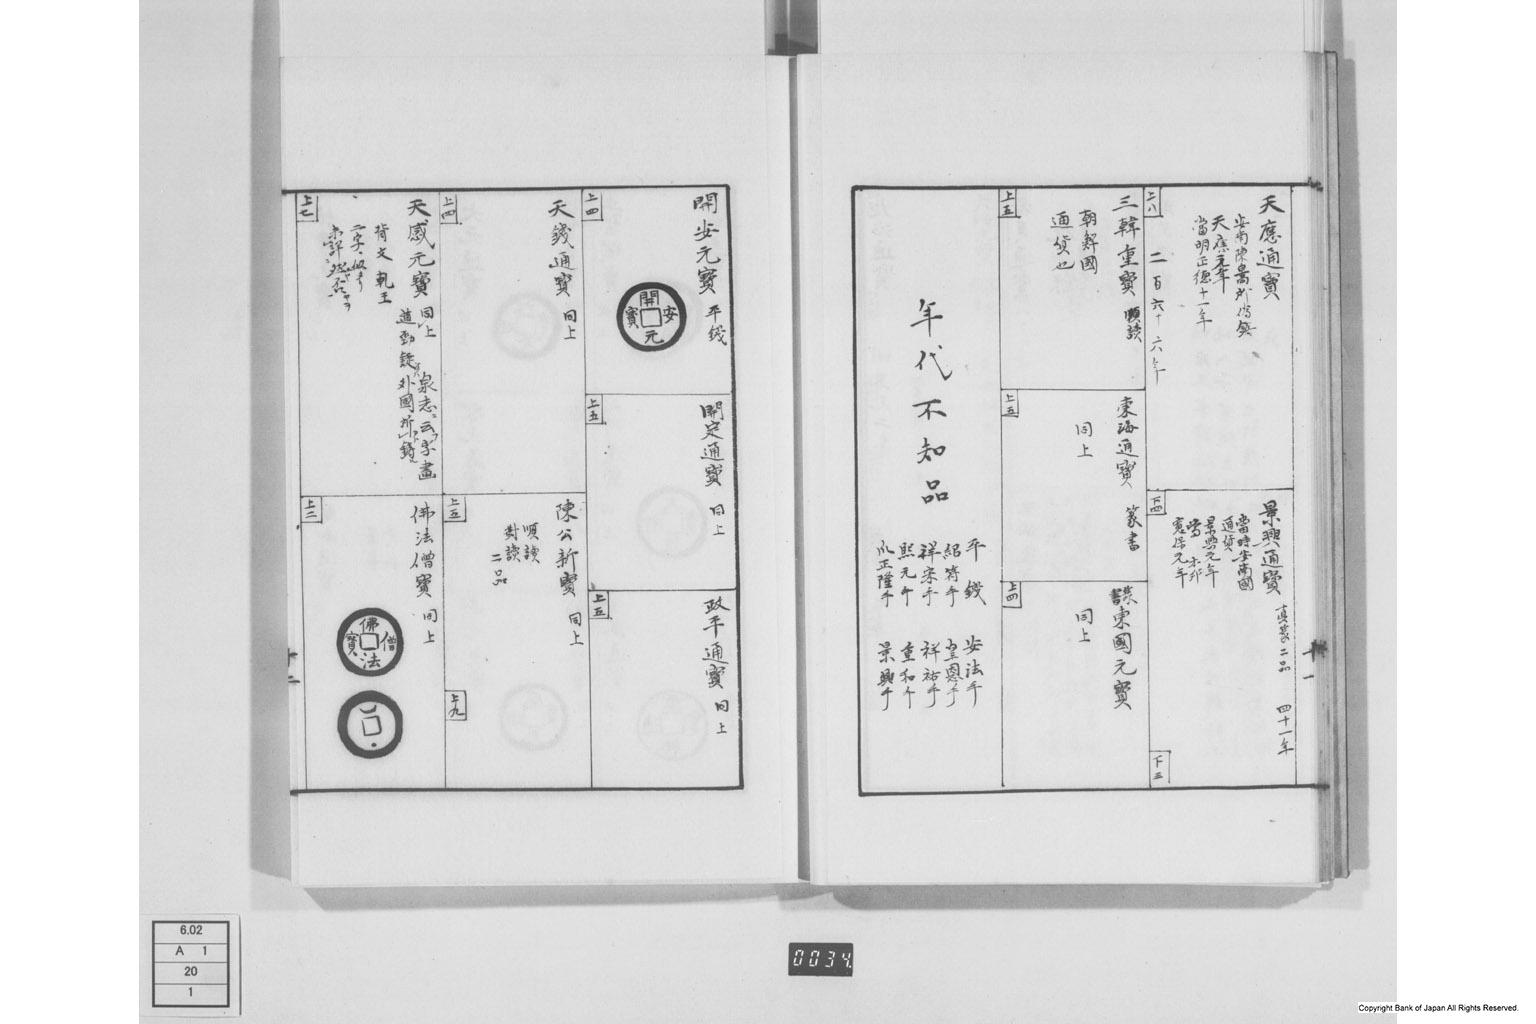 天應通寳
安南陳暠所鋳
天應元年
當明正徳十一年
二百六十六年
上八
景興通寳
真篆二品
四十一年
當時安南國
通貨
景興元年
當本邦
寛保元年
下四
下三
三韓重寳 順読
朝鮮國
通貨也
上五
東海通寳 篆書
同上
上五
東國元寳
同上
上四
年代不知品
平銭 安法手
紹符手 皇恩手
祥宋手 祥祐手
熙元手 重和手
正隆手 景興手
十一
開安元寳 平銭
開安元寳
上四
開定通寳 同上
上五
政平通寳 同上
上五
天銭通寳 同上
上四
陳公新寳 同上
順読
對読
二品
上五
上九
天感元寳 同上
泉志云字畫
遒勁錠外國所鋳
背文乹王
二字
未詳
上七
佛法僧寳 同上
佛法僧寳
上二
十二
6.02
A 1
20
1
0034
Copyright Bank of Japan All Rights Reserved.